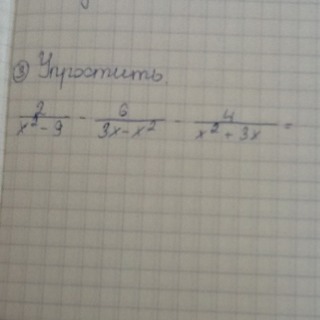 ③ Упростить.
2/(x² - 9) - 6/(3x - x²) - 4/(x² + 3x) =